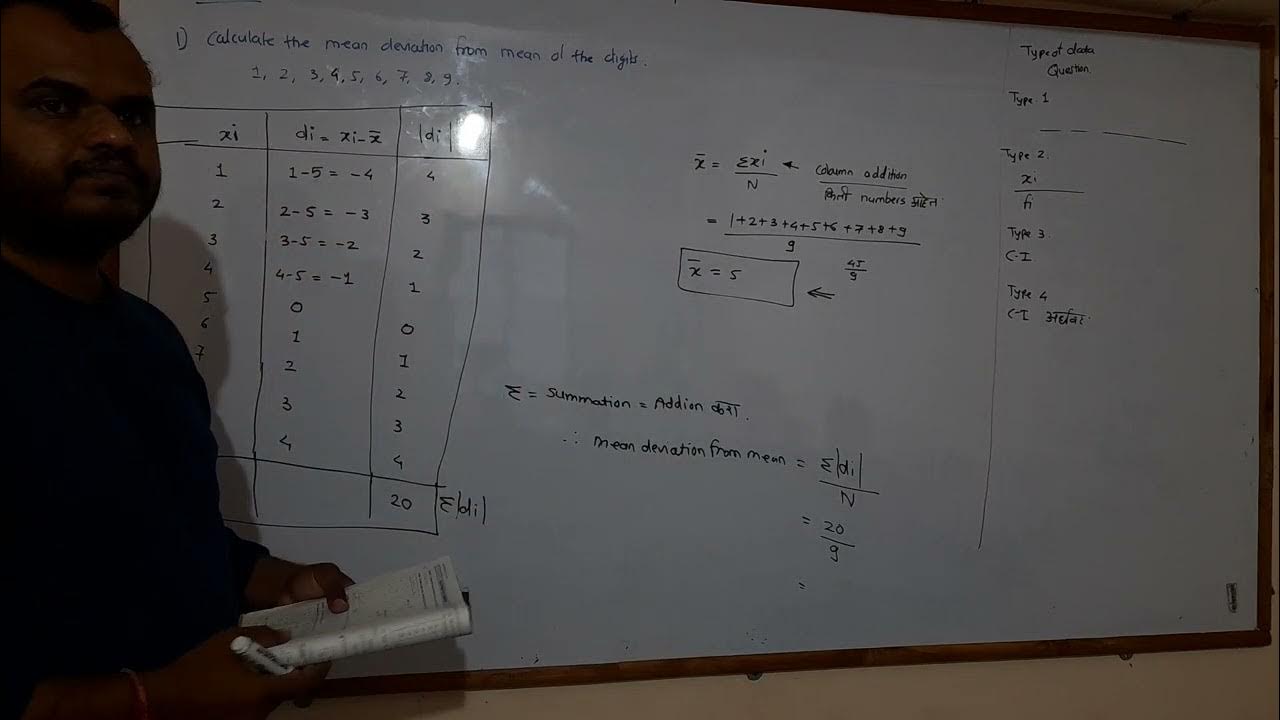 1) Calculate the mean deviation from mean of the digits.
1, 2, 3, 4, 5, 6, 7, 8, 9.
xi di = xi - x̄ |di|
1 1-5 = -4 4
2 2-5 = -3 3
3 3-5 = -2 2
4 4-5 = -1 1
5 0 0
6 1 1
7 2 2
3 3
4 4
20 Σ|di|
x̄ = Σxi / N ← column addition
किती numbers आहेत.
= 1+2+3+4+5+6+7+8+9 / 9
x̄ = 5 ⇐ 45/9
Σ = Summation = Addion करा.
∴ mean deviation from mean = Σ|di| / N
= 20 / 9
=
Type of data
Question.
Type 1
Type 2.
xi
fi
Type 3.
C-I
Type 4
C-I